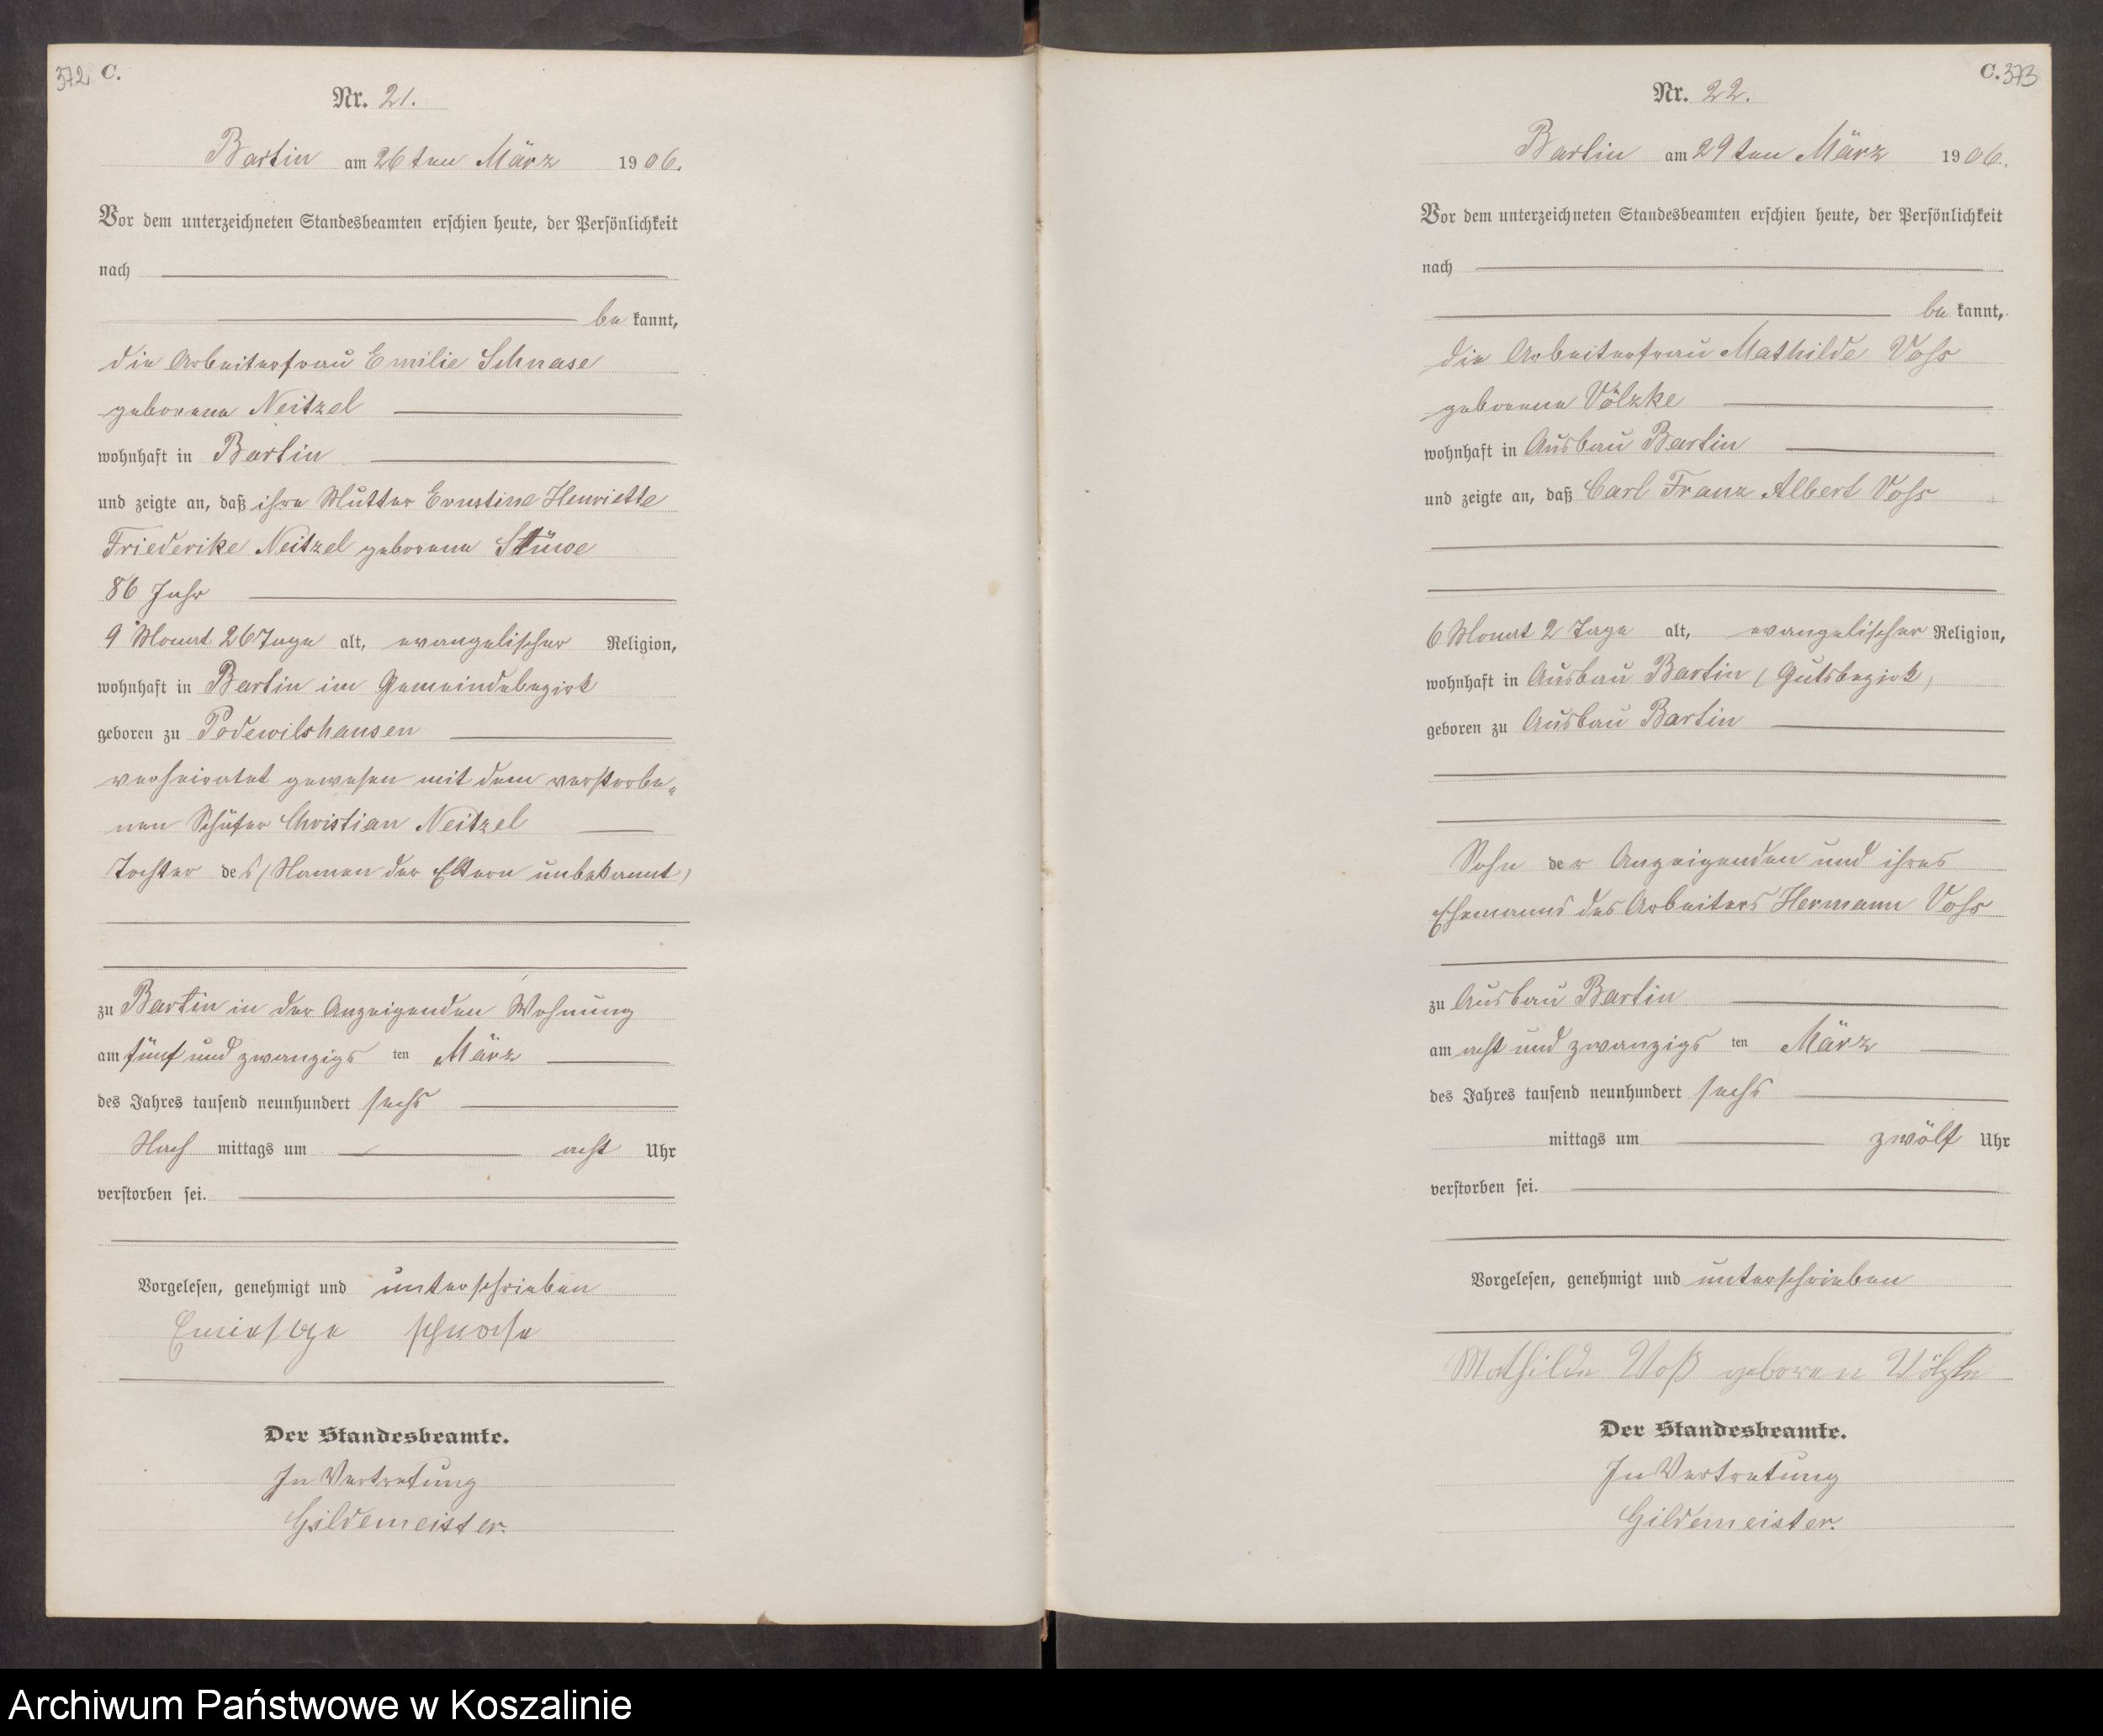 372 C.
Nr. 21.
Bartin am 26ten März 1906.
Vor dem unterzeichneten Standesbeamten erschien heute, der Persönlichkeit
nach
be kannt,
die Arbeiterfrau Emilie Schnase
geborene Neitzel
wohnhaft in Bartin
und zeigte an, daß ihre Mutter Ernstine Henriette
Friederike Neitzel geborene Stüwe
86 Jahr
9 Monat 26 Tage alt, evangelischer Religion,
wohnhaft in Bartin im Gemeindebezirk
geboren zu Podewilshausen
verheiratet gewesen mit dem verstorbe„
nen Schäfer Christian Neitzel
Tochter des (Namen der Eltern unbekannt)
zu Bartin in der Anzeigenden Wohnung
am fünf und zwanzigs ten März
des Jahres tausend neunhundert sechs
Nach mittags um acht Uhr
verstorben sei.
Vorgelesen, genehmigt und unterschrieben
schnase
Der Standesbeamte.
In Vertretung
Gildemeister.
C. 373
Nr. 22.
Bartin am 29ten März 1906.
Vor dem unterzeichneten Standesbeamten erschien heute, der Persönlichkeit
nach
be kannt,
die Arbeiterfrau Mathilde Voß
geborene Völzke
wohnhaft in Ausbau Bartin
und zeigte an, daß Carl Franz Albert Voß
6 Monat 2 Tage alt, evangelischer Religion,
wohnhaft in Ausbau Bartin (Gutsbezirk)
geboren zu Ausbau Bartin
Sohn der Anzeigenden und ihres
Ehemanns des Arbeiters Hermann Voß
zu Ausbau Bartin
am acht und zwanzigs ten März
des Jahres tausend neunhundert sechs
mittags um zwölf Uhr
verstorben sei.
Vorgelesen, genehmigt und unterschrieben
Mathilde Voß geboren Völzke
Der Standesbeamte.
In Vertretung
Gildemeister.
Archiwum Państwowe w Koszalinie